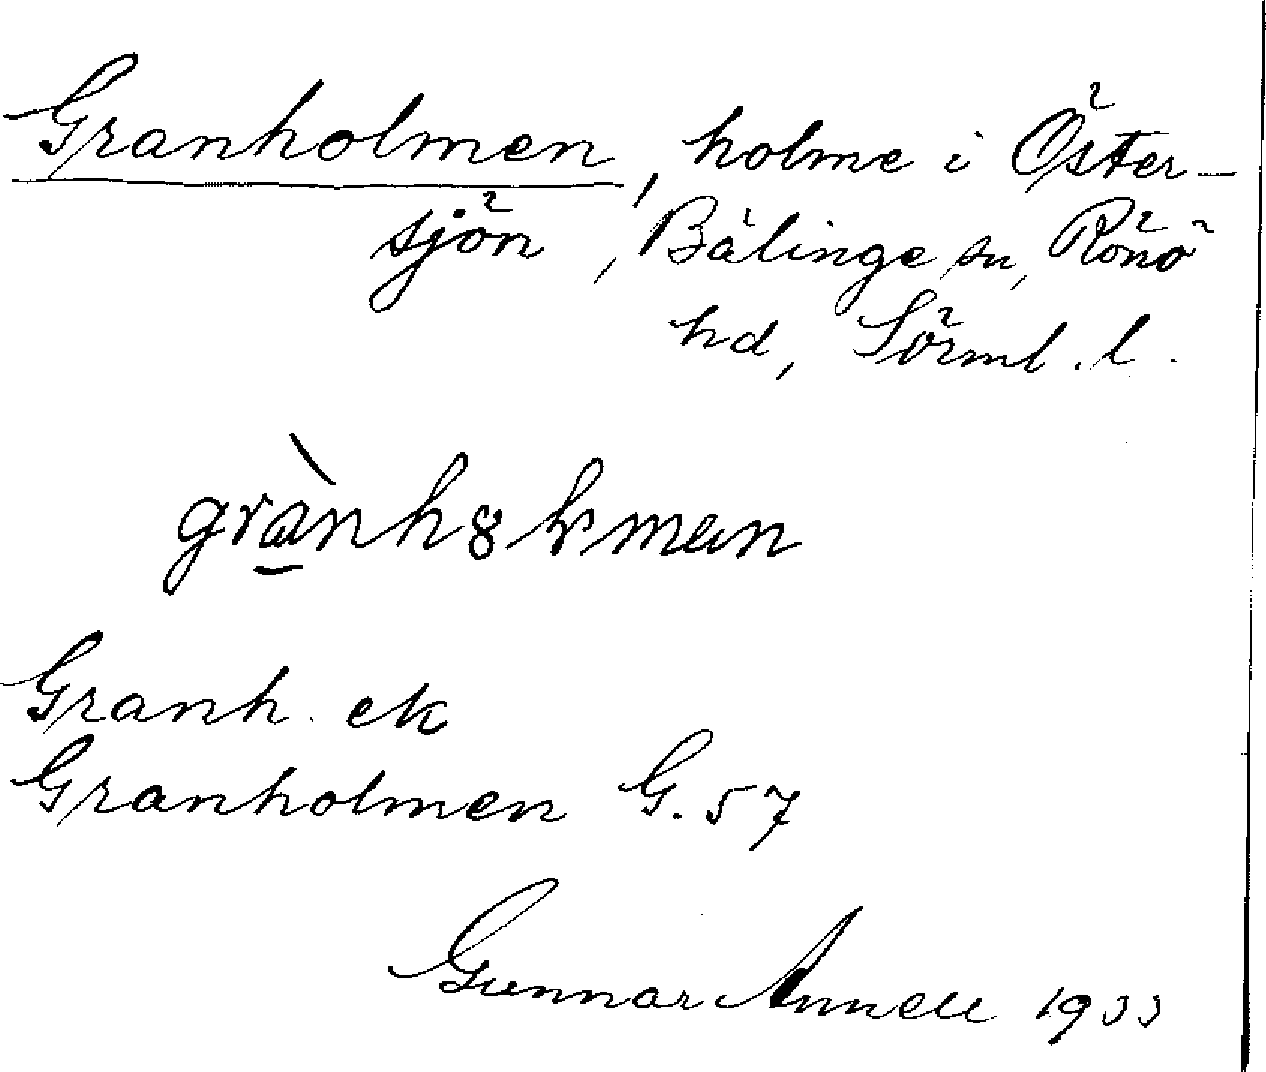 Granholmen, holme i Öster-
sjön, Bälinge sn, Rönö
hd, Sörml. l.
Granh. ek
Granholmen G. 57
Gunnar Annell 1933